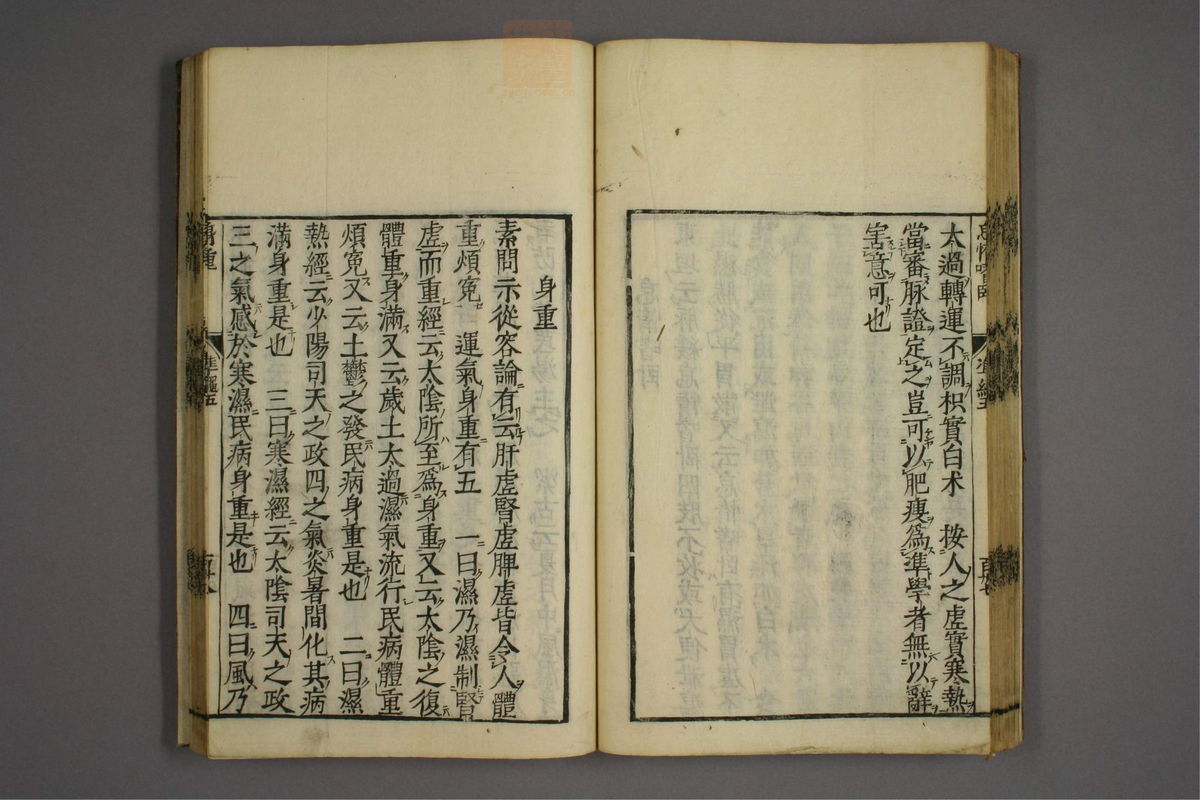 太過轉運不調枳實白术　按人之虛實寒熱
當審脉證定之豈可以肥瘦爲準學者無以辭
害意可也
身重
素問示從容論有云肝虛腎虛脾虛皆令人體
重煩寃　運氣身重有五　一曰濕乃濕制腎
虛而重經云太陰所至爲身重又云太陰之復
體重身滿又云歲土太過濕氣流行民病體重
煩寃又云土鬱之發民病身重是也　二曰濕
熱經云少陽司天之政四之氣炎暑間化其病
滿身重是也　三曰寒濕經云太陰司天之政
三之氣感於寒濕民病身重是也　四曰風乃
身重